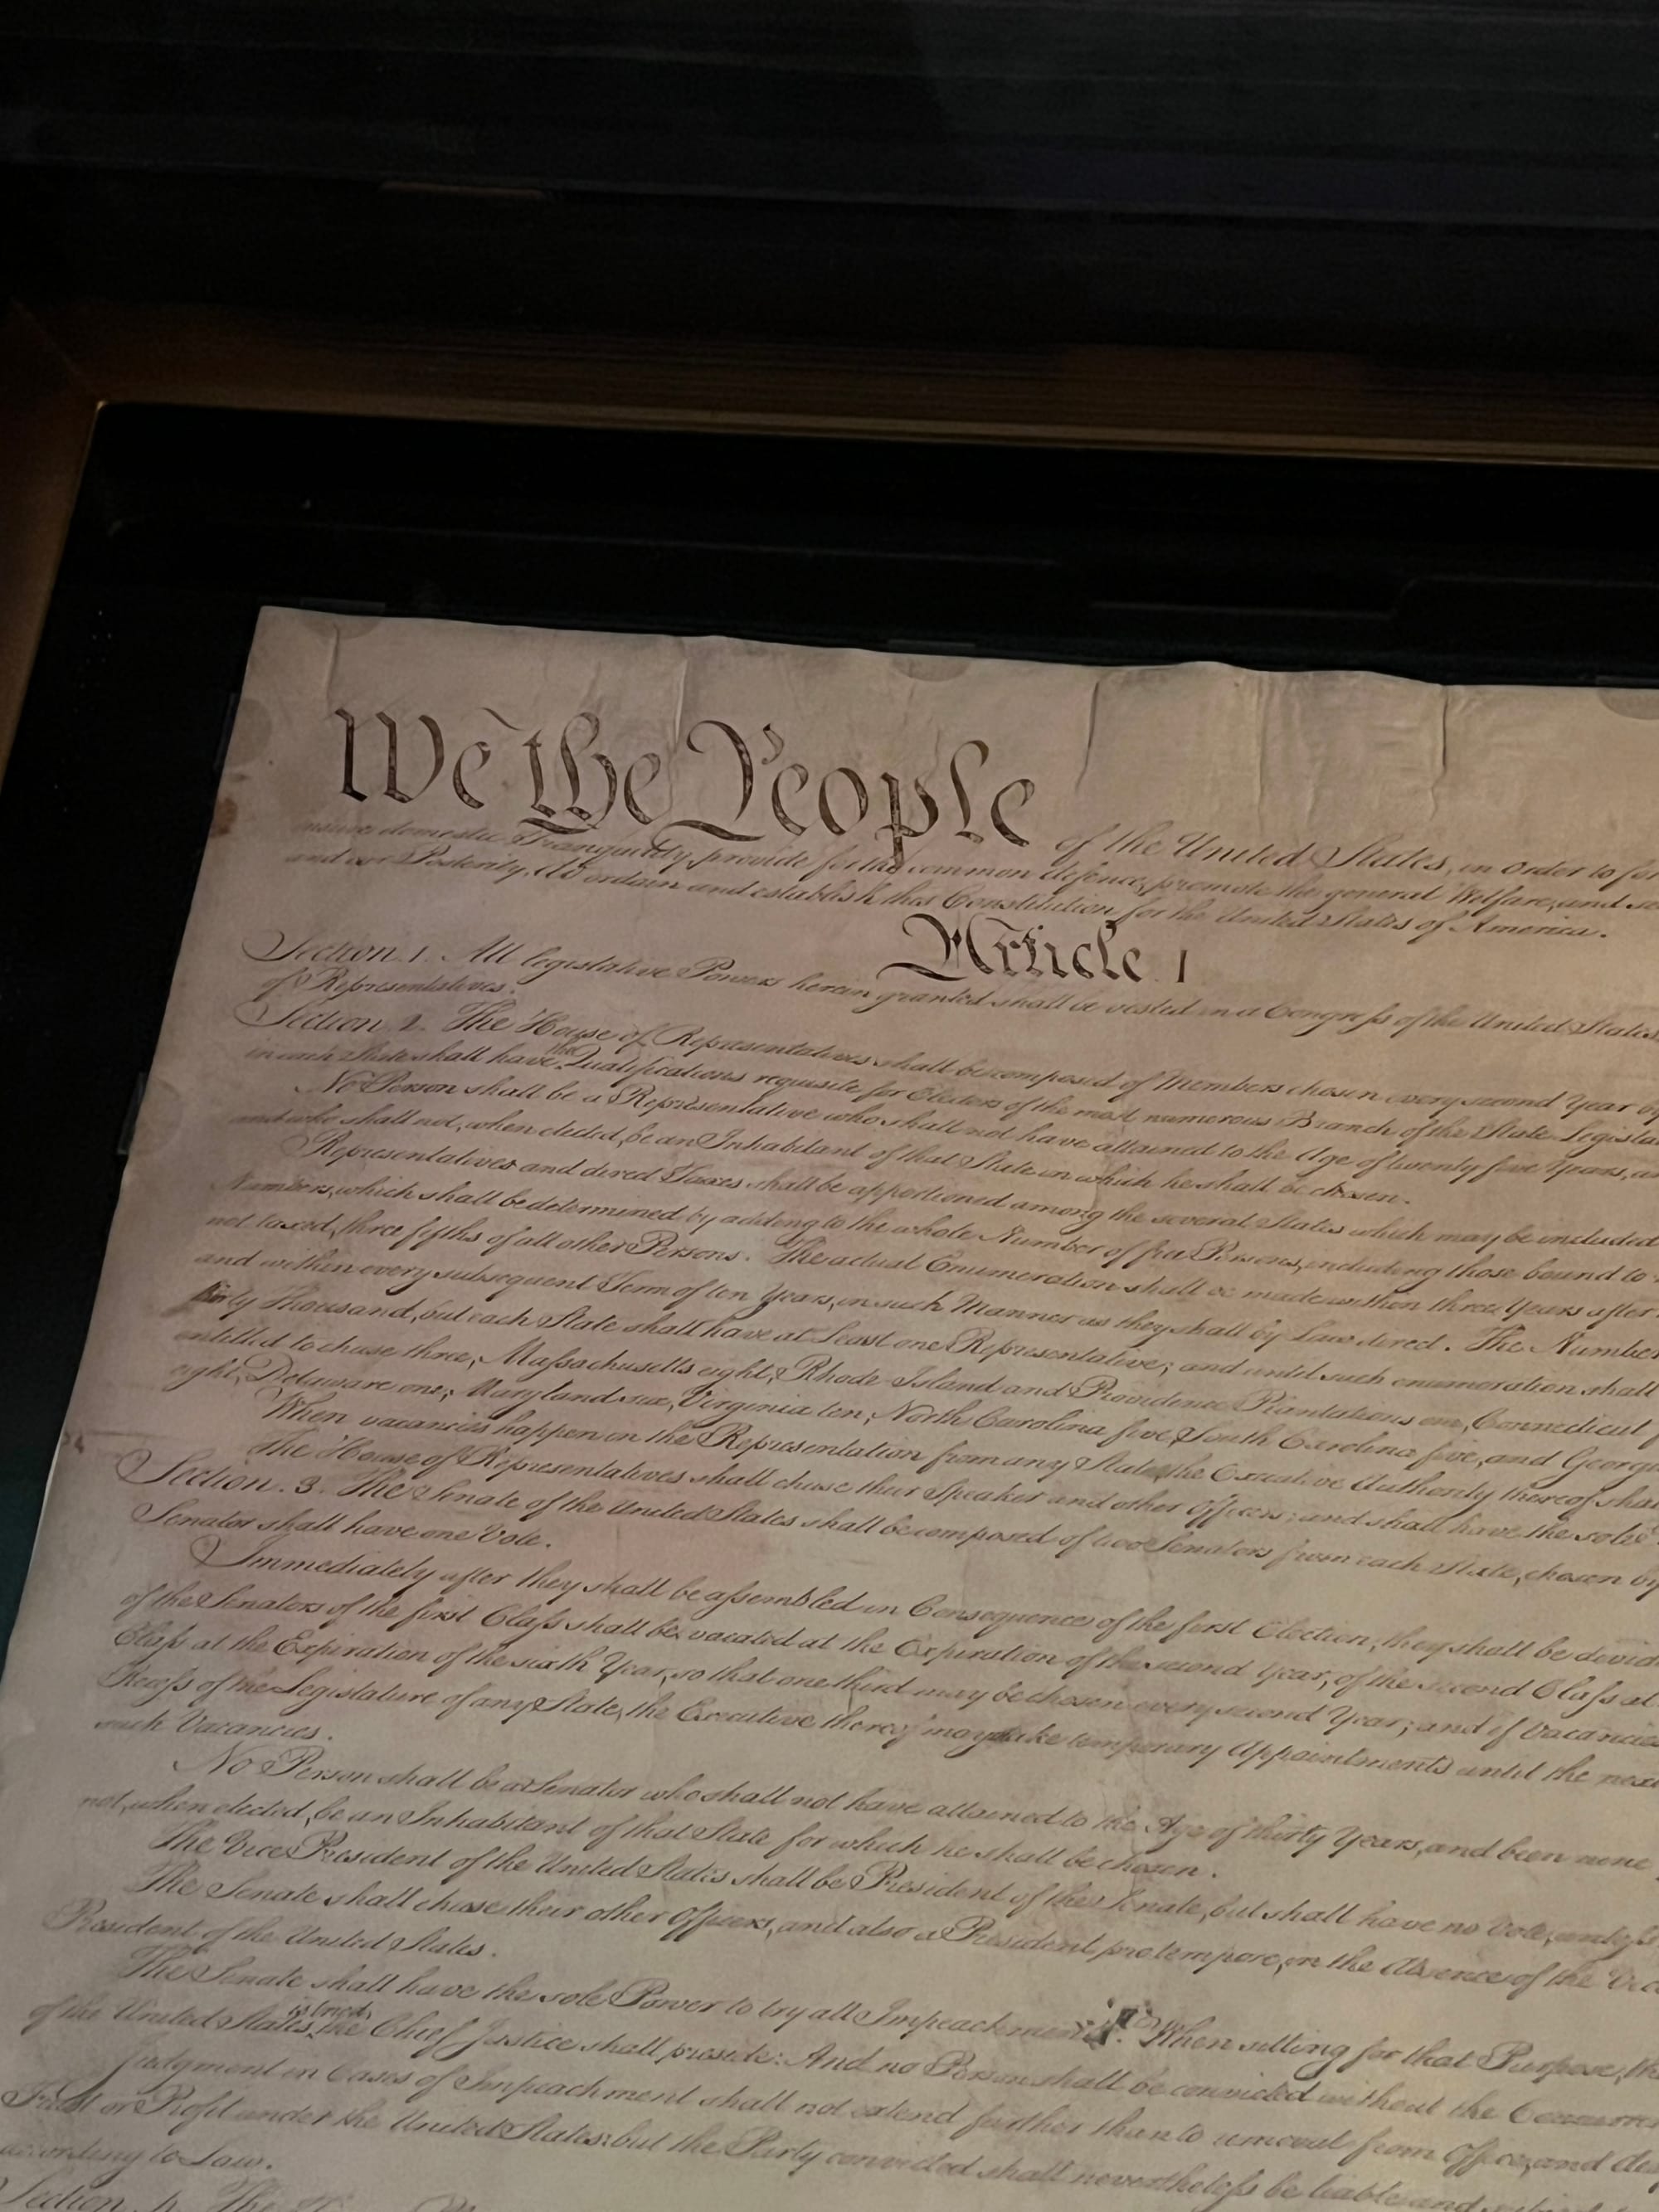 We the People of the United States, in Order to for
insure domestic Tranquility, provide for the common defence, promote the general Welfare, and se
and our Posterity, do ordain and establish this Constitution for the United States of America.
Article. I.
Section. 1. All legislative Powers herein granted shall be vested in a Congress of the United States
of Representatives.
Section. 2. The House of Representatives shall be composed of Members chosen every second Year by
in each State shall have the Qualifications requisite for Electors of the most numerous Branch of the State Legisla
No Person shall be a Representative who shall not have attained to the Age of twenty five Years, a
and who shall not, when elected, be an Inhabitant of that State in which he shall be chosen.
Representatives and direct Taxes shall be apportioned among the several States which may be included
Numbers, which shall be determined by adding to the whole Number of free Persons, including those bound to
not taxed, three fifths of all other Persons. The actual Enumeration shall be made within three Years after
and within every subsequent Term of ten Years, in such Manner as they shall by Law direct. The Number
thirty Thousand, but each State shall have at Least one Representative; and until such enumeration shall
entitled to chuse three, Massachusetts eight, Rhode-Island and Providence Plantations one, Connecticut
eight, Delaware one, Maryland six, Virginia ten, North Carolina five, South Carolina five, and Georgi
When vacancies happen in the Representation from any State, the Executive Authority thereof shal
The House of Representatives shall chuse their Speaker and other Officers; and shall have the sole
Section. 3. The Senate of the United States shall be composed of two Senators from each State, chosen by
Senator shall have one Vote.
Immediately after they shall be assembled in Consequence of the first Election, they shall be divid
of the Senators of the first Class shall be vacated at the Expiration of the second Year, of the second Class at
Class at the Expiration of the sixth Year, so that one third may be chosen every second Year; and if Vacancie
Recess of the Legislature of any State, the Executive thereof may make temporary Appointments until the nex
such Vacancies.
No Person shall be a Senator who shall not have attained to the Age of thirty Years, and been nine
not, when elected, be an Inhabitant of that State for which he shall be chosen.
The Vice President of the United States shall be President of the Senate, but shall have no Vote, unless
The Senate shall chuse their other Officers, and also a President pro tempore, in the Absence of the Vic
President of the United States.
The Senate shall have the sole Power to try all Impeachments. When sitting for that Purpose, th
is tried,
of the United States the Chief Justice shall preside: And no Person shall be convicted without the Concurre
Judgment in Cases of Impeachment shall not extend further than to removal from Office, and di
Trust or Profit under the United States: but the Party convicted shall nevertheless be liable and subject
according to Law.
Section. 4. The